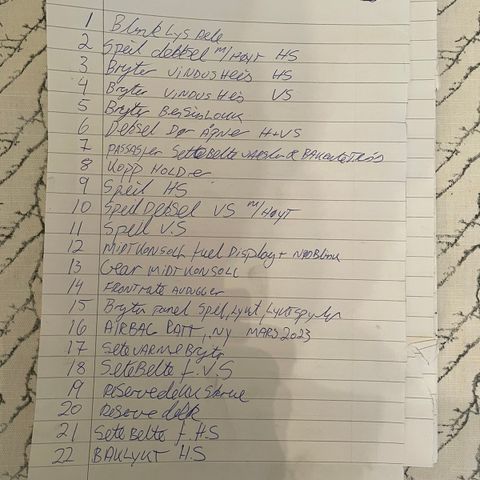 1 Blink Lys Dele
2 Speil deksel m/Høyt HS
3 Bryter VINDUSHeis HS
4 Bryter VINDUSHeis VS
5 Bryter BensinLokk
6 Deksel Dør Åpner H+VS
7 PASSASJer SetteBelte
8 KOPP HOLDer
9 Speil HS
10 Speil Deksel VS m/HøyT
11 Speil V.S
12 MIDTKONSOLL Fuel Display + NødBlink
13 Gear MIDTKONSOLL
14 FRONTrute
15 Bryter Panel Speil, Lykt, Lyktspyler
16 AIRBAG RATT, NY MARS 2023
17 SeteVARMe Bryter
18 SeteBelte F.V.S
19 Reservedekk Skrue
20 Reserve dekk
21 SeteBelte F.H.S
22 BAKLYKT H.S